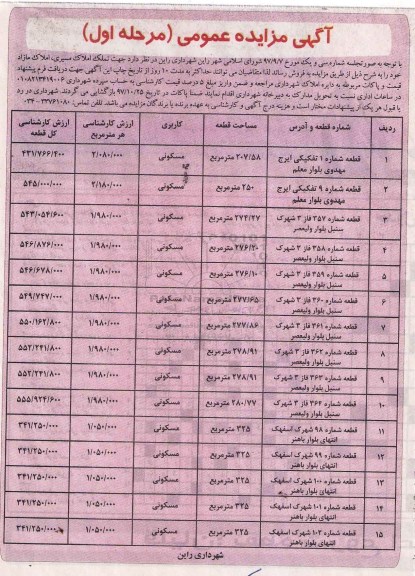 آگهی مزایده عمومی (مرحله اول)
با توجه به صورتجلسه شماره سی و یک مورخ ۹۷/۹/۷ شورای اسلامی شهر راین شهرداری راین در نظر دارد جهت تملک املاک مسیری، املاک مازاد
خود را به شرح ذیل از طریق مزایده به فروش رساند لذا متقاضیان می توانند حداکثر به مدت ۱۰ روز از تاریخ چاپ این آگهی جهت دریافت فرم پیشنهاد
قیمت و پاکات مربوطه به دایره املاک شهرداری مراجعه و ضمن واریز مبلغ ۵ درصد قیمت کارشناسی به حساب سپرده شهرداری
در ساعات اداری نسبت به تحویل مدارک به دبیرخانه شهرداری اقدام نمایند ضمنا پاکات در تاریخ ۹۷/۱۰/۲۵ بازگشایی می گردند. شهرداری در رد
یا قبول هر یک از پیشنهادات مختار است و هزینه درج آگهی و کارشناسی به عهده برنده یا برندگان مزایده می باشد. تلفن تماس: ۳۳۷۶۱۰۸۰-۰۳۴
ردیف شماره قطعه و آدرس مساحت قطعه کاربری ارزش کارشناسی هر مترمربع ارزش کارشناسی کل قطعه
۱ قطعه شماره ۱ تفکیکی ایرج مهدوی بلوار معلم ۲۰۷/۵۸ مترمربع مسکونی ۲/۰۸۰/۰۰۰ ۴۳۱/۷۶۶/۴۰۰
۲ قطعه شماره ۹ تفکیکی ایرج مهدوی بلوار معلم ۲۵۰ مترمربع مسکونی ۲/۱۸۰/۰۰۰ ۵۴۵/۰۰۰/۰۰۰
۳ قطعه شماره ۳۵۷ فاز ۳ شهرک سنبل بلوار ولیعصر ۲۷۴/۲۷ مترمربع مسکونی ۱/۹۸۰/۰۰۰ ۵۴۳/۰۵۴/۶۰۰
۴ قطعه شماره ۳۵۸ فاز ۳ شهرک سنبل بلوار ولیعصر ۲۷۶/۲۰ مترمربع مسکونی ۱/۹۸۰/۰۰۰ ۵۴۶/۸۷۶/۰۰۰
۵ قطعه شماره ۳۵۹ فاز ۳ شهرک سنبل بلوار ولیعصر ۲۷۶/۱۰ مترمربع مسکونی ۱/۹۸۰/۰۰۰ ۵۴۶/۶۷۸/۰۰۰
۶ قطعه شماره ۳۶۰ فاز ۳ شهرک سنبل بلوار ولیعصر ۲۷۷/۶۵ مترمربع مسکونی ۱/۹۸۰/۰۰۰ ۵۴۹/۷۴۷/۰۰۰
۷ قطعه شماره ۳۶۱ فاز ۳ شهرک سنبل بلوار ولیعصر ۲۷۷/۸۶ مترمربع مسکونی ۱/۹۸۰/۰۰۰ ۵۵۰/۱۶۲/۸۰۰
۸ قطعه شماره ۳۶۲ فاز ۳ شهرک سنبل بلوار ولیعصر ۲۷۸/۹۱ مترمربع مسکونی ۱/۹۸۰/۰۰۰ ۵۵۲/۲۴۱/۸۰۰
۹ قطعه شماره ۳۶۳ فاز ۳ شهرک سنبل بلوار ولیعصر ۲۷۸/۹۱ مترمربع مسکونی ۱/۹۸۰/۰۰۰ ۵۵۲/۲۴۱/۸۰۰
۱۰ قطعه شماره ۳۶۴ فاز ۳ شهرک سنبل بلوار ولیعصر ۲۸۰/۷۷ مترمربع مسکونی ۱/۹۸۰/۰۰۰ ۵۵۵/۹۲۴/۶۰۰
۱۱ قطعه شماره ۹۸ شهرک اسفهک انتهای بلوار باهنر ۳۲۵ مترمربع مسکونی ۱/۰۵۰/۰۰۰ ۳۴۱/۲۵۰/۰۰۰
۱۲ قطعه شماره ۹۹ شهرک اسفهک انتهای بلوار باهنر ۳۲۵ مترمربع مسکونی ۱/۰۵۰/۰۰۰ ۳۴۱/۲۵۰/۰۰۰
۱۳ قطعه شماره ۱۰۰ شهرک اسفهک انتهای بلوار باهنر ۳۲۵ مترمربع مسکونی ۱/۰۵۰/۰۰۰ ۳۴۱/۲۵۰/۰۰۰
۱۴ قطعه شماره ۱۰۱ شهرک اسفهک انتهای بلوار باهنر ۳۲۵ مترمربع مسکونی ۱/۰۵۰/۰۰۰ ۳۴۱/۲۵۰/۰۰۰
۱۵ قطعه شماره ۱۰۲ شهرک اسفهک انتهای بلوار باهنر ۳۲۵ مترمربع مسکونی ۱/۰۵۰/۰۰۰ ۳۴۱/۲۵۰/۰۰۰
شهرداری راین